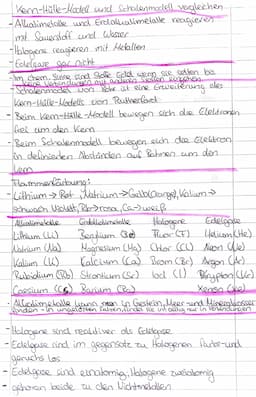 Kern-Hülle-Modell und Schalenmodell vergleichen
- Alkalimetalle und Erdalkalimetalle reagieren
mit Sauerstoff und Wasser
- Halogene reagieren mit Metallen
- Edelgase gar nicht
- Im chem. Sinne sind Stoffe Edel, wenn sie selten bis
keine Verbindungen mit anderen Stoffen eingehen
- Schalenmodell von Bohr ist eine Erweiterung des
Kern-Hülle-Modells von Rutherford
- Beim Kern-Hülle-Modell bewegen sich die Elektronen
frei um den Kern
- Beim Schalenmodell bewegen sich die Elektron
in definierten Abständen auf Bahnen um den
Kern
Flammenfärbung:
- Lithium → Rot, Natrium → Gelb/Orange, Kalium →
schwach Violett,
Alkalimetalle Erdalkalimetalle Halogene Edelgase
Lithium (Li) Beryllium (Be) Fluor (F) Helium (He)
Natrium (Na) Magnesium (Mg) Chlor (Cl) Neon (Ne)
Kalium (K) Calcium (Ca) Brom (Br) Argon (Ar)
Rubidium (Rb) Strontium (Sr) Iod (I) Krypton (Kr)
Caesium (Cs) Barium (Ba) Xenon (Xe)
- Alkalimetalle kann man in Gestein, Meer- und Mineralwasser
finden
- Halogene sind reaktiver als Edelgase
- Edelgase sind im gegensatz zu Halogenen Farb- und
geruchslos
- Edelgase sind einatomig, Halogene zweiatomig
- gehören beide zu den Nichtmetallen